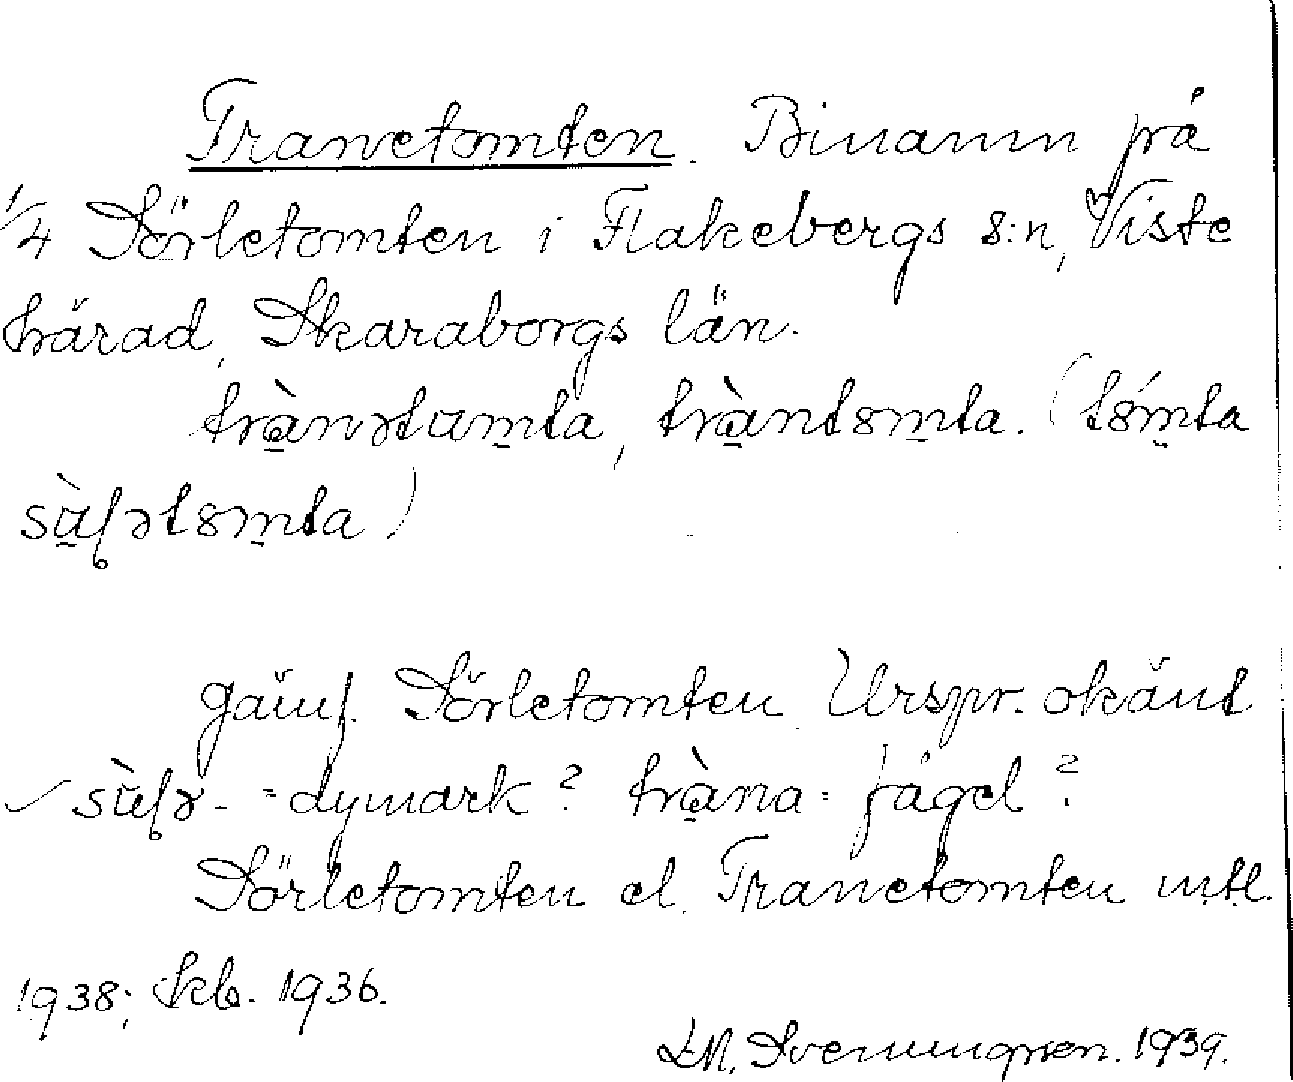 Tranetomten. Binamn på
1/4 Sörletomten i Flakebergs s:n, Viste
härad, Skaraborgs län.
trànətumta, tràntsmta. (tsmta
sùlətsmta)
Jämf. Sörletomten. Urspr. okänt
sùlə- = dymark? tràna = fågel?
Sörletomten el. Tranetomten mtl.
1938; Skb. 1936.
Svenungsson. 1939.